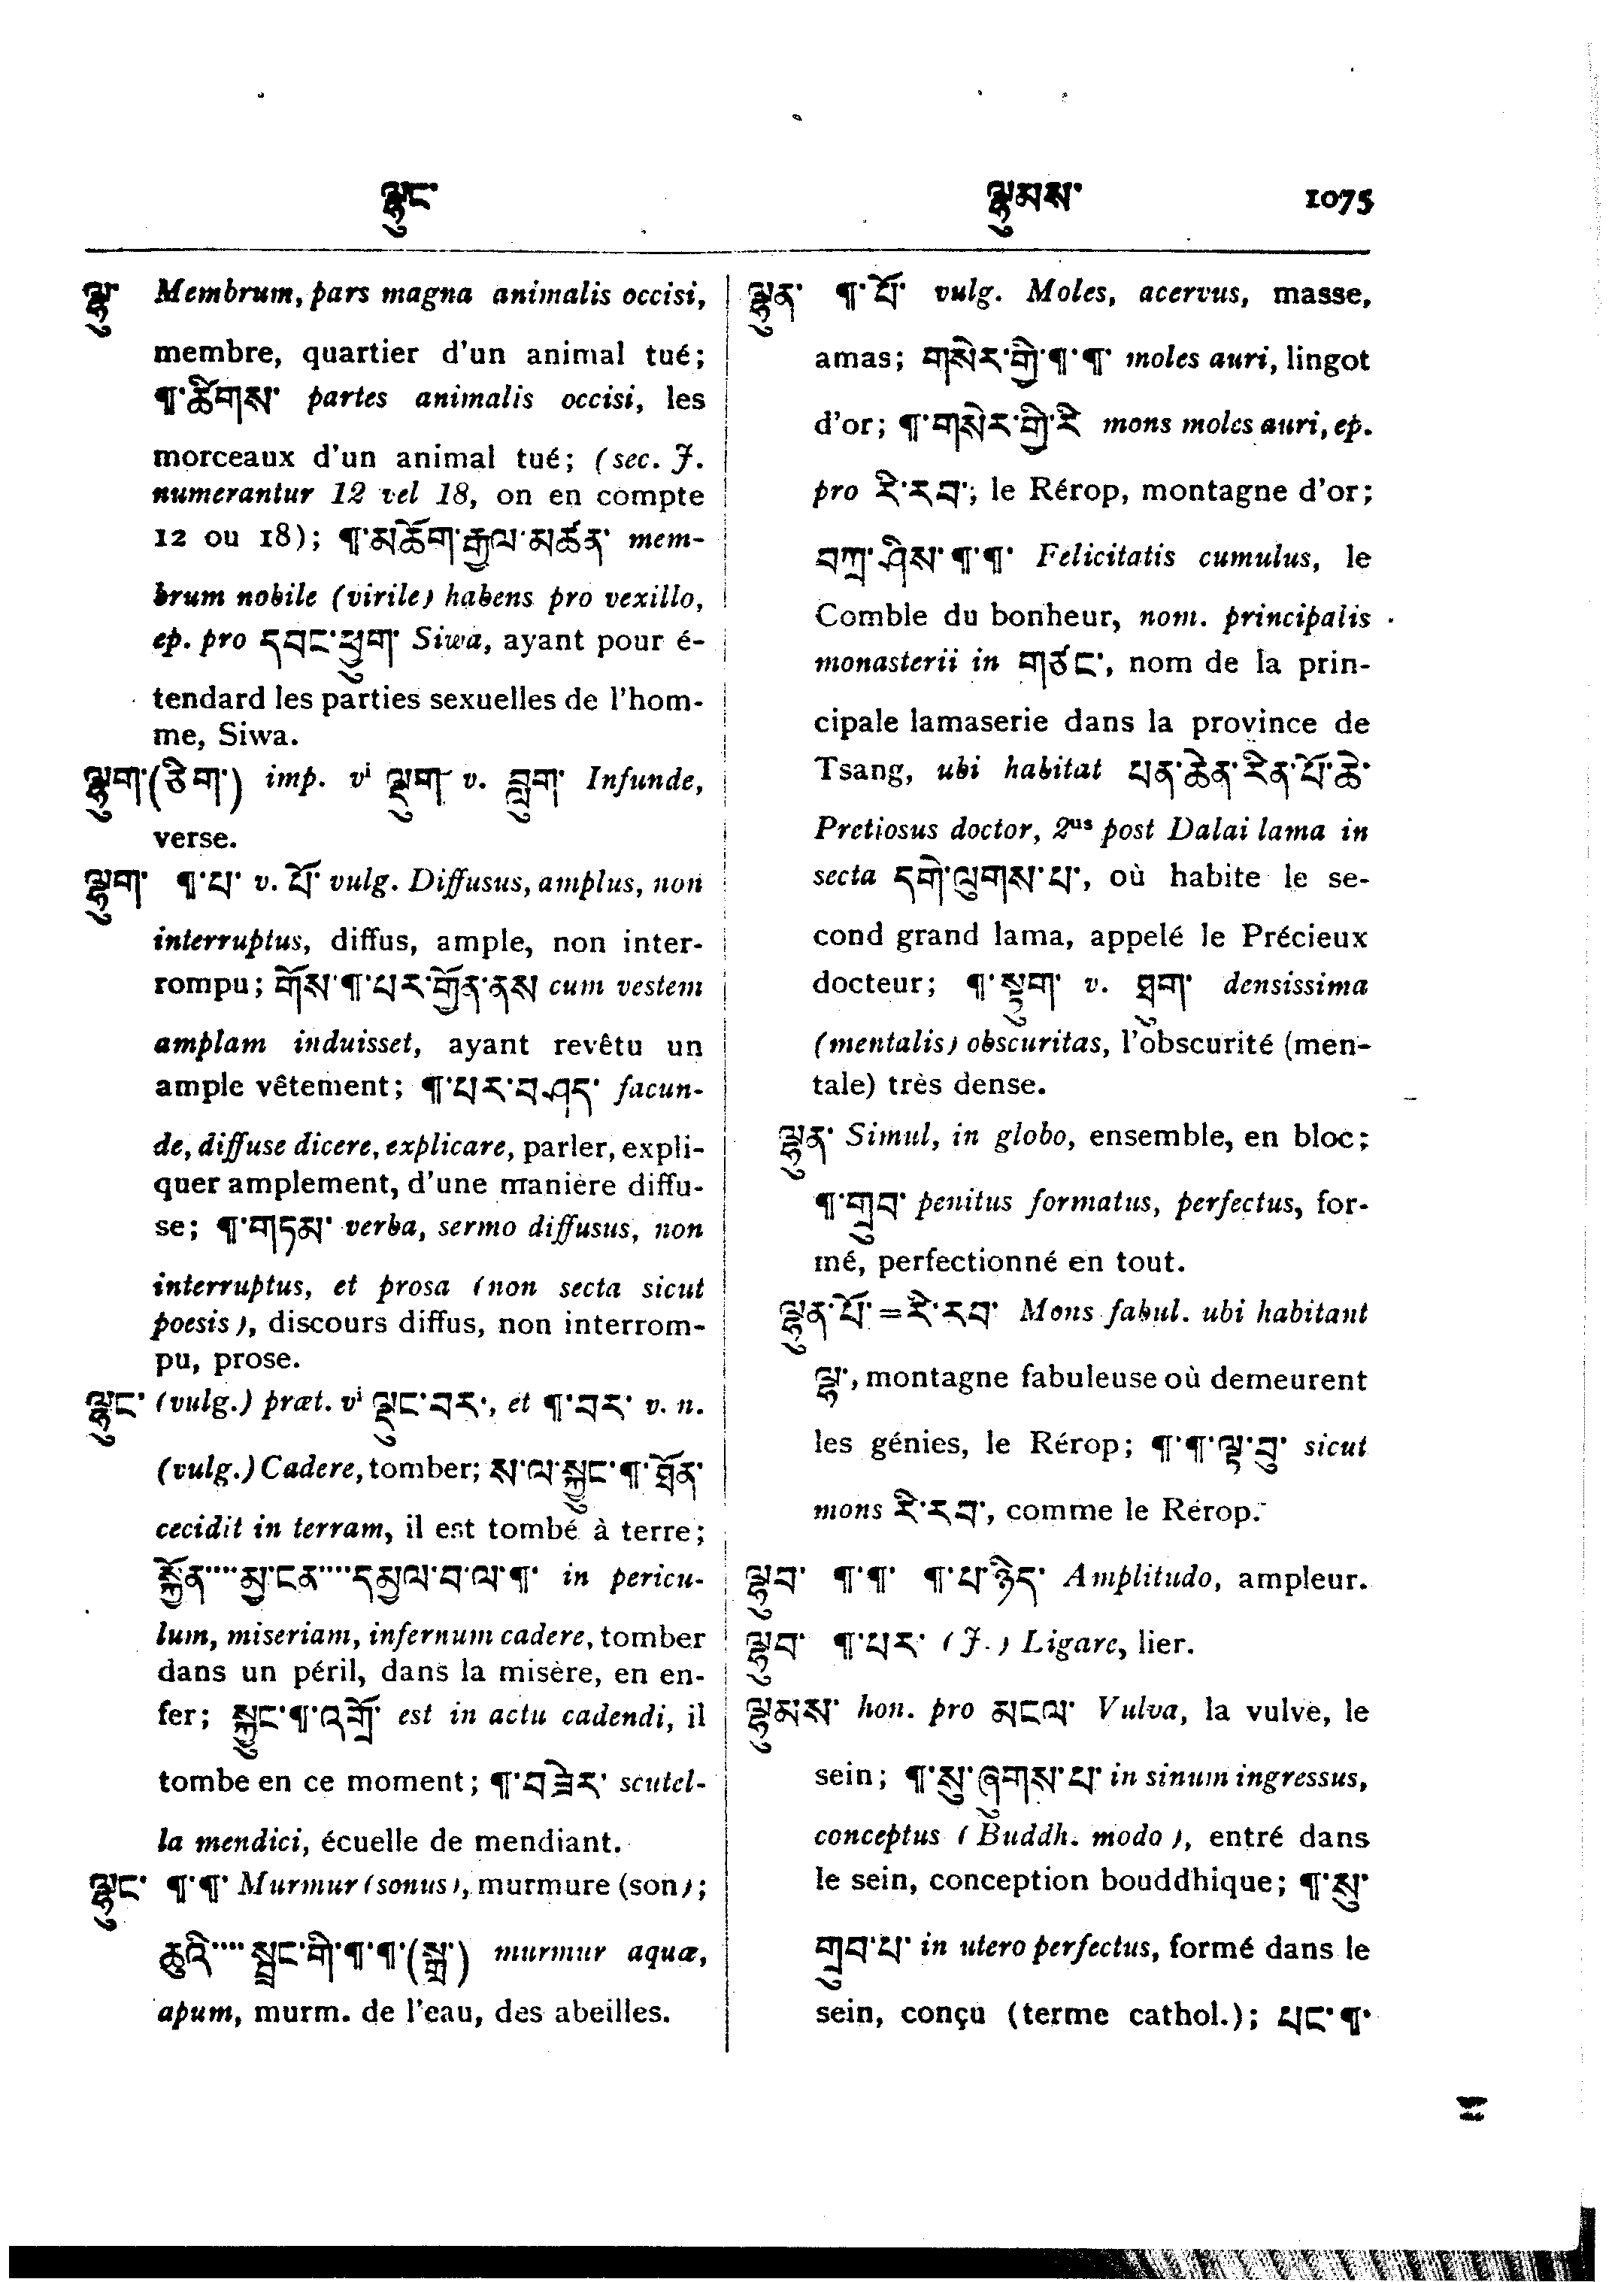 ལྷུང་ ལྷུམས་ 1075
ལྷུ་ Membrum, pars magna animalis occisi,
membre, quartier d'un animal tué;
¶་ཚིགས་ partes animalis occisi, les
morceaux d'un animal tué; (sec. J.
numerantur 12 vel 18, on en compte
12 ou 18); ¶་མཆོག་རྒྱལ་མཚན་ mem-
brum nobile (virile) habens pro vexillo,
ep. pro དབང་ཕྱུག་ Siwa, ayant pour é-
tendard les parties sexuelles de l'hom-
me, Siwa.
ལྷུག་(ཅིག་) imp. vⁱ ལྡུག་ v. བླུག་ Infunde,
verse.
ལྷུག་ ¶་པ་ v. པོ་ vulg. Diffusus, amplus, non
interruptus, diffus, ample, non inter-
rompu; གོས་¶་པར་གྱོན་ནས cum vestem
amplam induisset, ayant revêtu un
ample vêtement; ¶་པར་བཤད་ facun-
de, diffuse dicere, explicare, parler, expli-
quer amplement, d'une manière diffu-
se; ¶་གཏམ་ verba, sermo diffusus, non
interruptus, et prosa (non secta sicut
poesis), discours diffus, non interrom-
pu, prose.
ལྷུང་ (vulg.) præt. vⁱ ལྟུང་བར་, et ¶་བར་ v. n.
(vulg.) Cadere, tomber; ས་ལ་སྐྱུང་¶་ཐོན་
cecidit in terram, il est tombé à terre;
སྐྱོན་····མྱ་ངན་····དམྱལ་བ་ལ་¶་ in pericu-
lum, miseriam, infernum cadere, tomber
dans un péril, dans la misère, en en-
fer; སྐྱུང་¶་འགྲོ་ est in actu cadendi, il
tombe en ce moment; ¶་བཟེར་ scutel-
la mendici, écuelle de mendiant.
ལྷུང་ ¶་¶་ Murmur (sonus), murmure (son);
ཆུའི་····སྦྲང་གི་¶་¶་(སྒྲ་) murmur aquæ,
apum, murm. de l'eau, des abeilles.
ལྷུན་ ¶་པོ་ vulg. Moles, acervus, masse,
amas; གསེར་གྱི་¶་¶་ moles auri, lingot
d'or; ¶་གསེར་གྱི་རི mons moles auri, ep.
pro རི་རབ་; le Rérop, montagne d'or;
བཀྲ་ཤིས་¶་¶་ Felicitatis cumulus, le
Comble du bonheur, nom. principalis
monasterii in གཙང་, nom de la prin-
cipale lamaserie dans la province de
Tsang, ubi habitat པན་ཆེན་རིན་པོ་ཆེ་
Pretiosus doctor, 2ᵘˢ post Dalai lama in
secta དགེ་ལུགས་པ་, où habite le se-
cond grand lama, appelé le Précieux
docteur; ¶་སྟུག་ v. ཐུག་ densissima
(mentalis) obscuritas, l'obscurité (men-
tale) très dense.
ལྷུན་ Simul, in globo, ensemble, en bloc;
¶་གྲུབ་ penitus formatus, perfectus, for-
mé, perfectionné en tout.
ལྷུན་པོ་=རི་རབ་ Mons fabul. ubi habitant
ལྷ་, montagne fabuleuse où demeurent
les génies, le Rérop; ¶་¶་ལྟ་བུ་ sicut
mons རི་རབ་, comme le Rérop.
ལྷུབ་ ¶་¶་ ¶་པ་ཉིད་ Amplitudo, ampleur.
ལྷུབ་ ¶་པར་ (J.) Ligare, lier.
ལྷུམས་ hon. pro མངལ་ Vulva, la vulve, le
sein; ¶་སུ་ཞུགས་པ་ in sinum ingressus,
conceptus (Buddh. modo), entré dans
le sein, conception bouddhique; ¶་སུ་
གྲུབ་པ་ in utero perfectus, formé dans le
sein, conçu (terme cathol.); པང་¶་